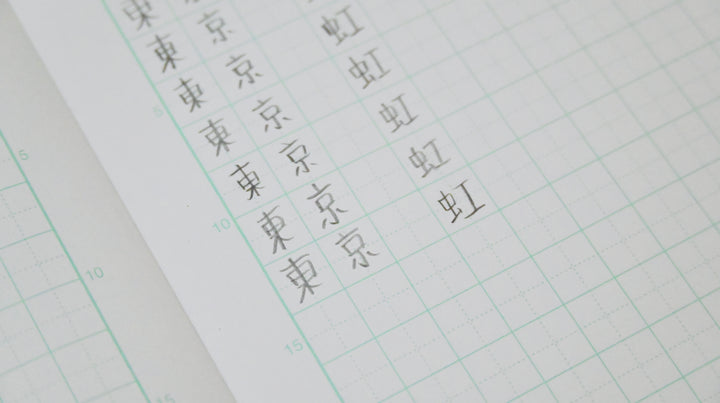 東
東 京
5 東 京 虹
東 京 虹
東 京 虹
10 東 京 虹
東 京 虹
15
5
10
15